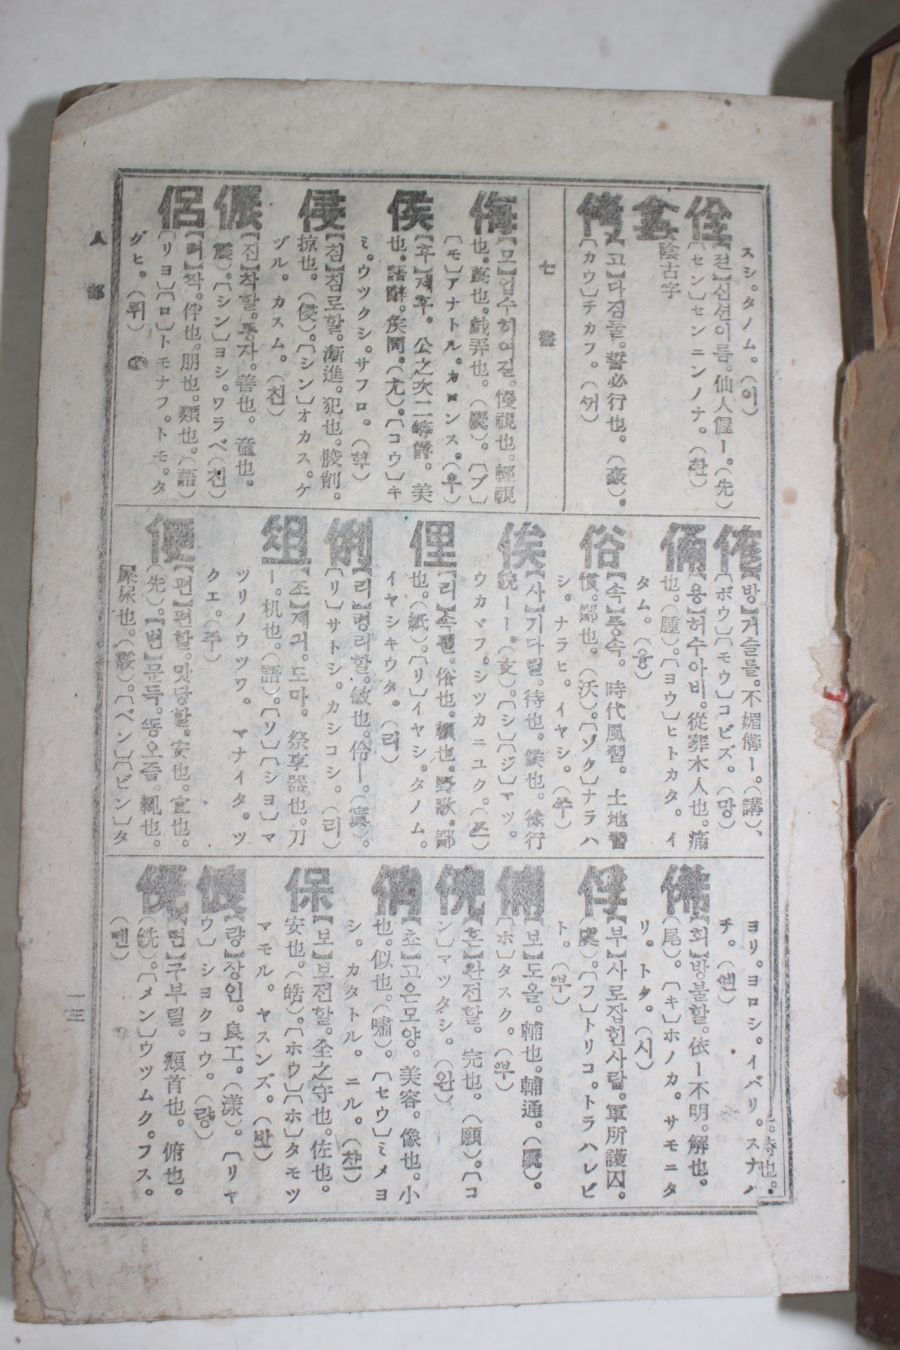 スシ。タノム。(이)
佺
【전】신션이름。仙人偓ー。(先)
〔セン〕センニンノナ。(촨)
陰古字
【고】다짐둘。誓必行也。(豪)。
〔カウ〕チカフ。
七畫
侮
【모】업수히여길。慢視也。輕視
也。戱弄也。(麌)。〔ブ〕
〔モ〕アナトル。カロンス。(우)
侯
【후】제후。公之次二等爵。美
也。語辭。矦同。(尤)。〔コウ〕キ
ミ。ウツクシ。サフロ。
侵
【침】침로할。漸進。犯也。
掠也。(侵)。〔シン〕オカス。ケ
ヅル。カスム。(친)
侲
【진】착할。동자。善也。童也。
(震)。〔シン〕ヨシ。ワラベ(진)
侶
【려】짝。伴也。朋也。類也。(語)
〔リヨ〕〔ロ〕トモナフ。トモ。タ
グヒ。(뤼)
【방】거슬를。不媚
〔ボウ〕〔モウ〕コビズ。(망)
俑
【용】허수아비。從葬木人也。痛
也。(腫)。〔ヨウ〕ヒトカタ。イ
タム。(융)
俗
【속】풍속。時代風習。土地習
慣。鄙也。(沃)。〔ゾク〕ナラハ
シ。ナラヒ。イヤシ。(쑤)
俟
【사】기다릴。待也。
ウカヾフ。シツカニユク。(쓰)
俚
【리】속될。俗也。賴也。野歌。鄙
也。(紙)。〔リ〕イヤシ。タノム。
イヤシキウタ。(리)
俐
【리】령리할。敏也。伶ー。(寘)。
〔リ〕サトシ。カシコシ。(리)
俎
【조】제긔。도마。祭享器也。刀
ー。机也。(語)。〔ソ〕〔シヨ〕マ
ツリノウツワ。マナイタ。ツ
クエ。(주)
便
【편】편할。맛당할。安也。宜也。
(先)。【변】문득。똥오즘。輒也。
屎尿也。(霰)。〔ベン〕〔ビン〕タ
ヨリ。ヨロシ。イバリ。スナハ
チ。(볜)
俙
【희】방불할。依ー不明。解也。
(尾)。〔キ〕ホノカ。サモニタ
リ。トク。(시)
俘
【부】사로잡힌사람。軍所護囚。
(虞)。〔フ〕トリコ。トラハレビ
ト。(부)
俌
【보】도울。輔也。輔通。(麌)。
〔ホ〕タスク。(부)
俒
【혼】완전할。完也。(願)。〔コ
ン〕マツタシ。(완)
俏
【쵸】고은모양。美容。像也。小
也。似也。(嘯)。〔セウ〕ミメヨ
シ。カタトル。ニル。(챤)
保
【보】보전할。全之守也。佐也。
安也。(皓)。〔ホウ〕〔ホ〕タモツ
マモル。ヤスンズ。(반)
俍
【량】장인。良工。(漾)。〔リヤ
ウ〕シヨクコウ。(량)
俛
【면】구부릴。頫首也。俯也。
(銑)。〔メン〕ウツムク。フス。
(몐)
人部
一三